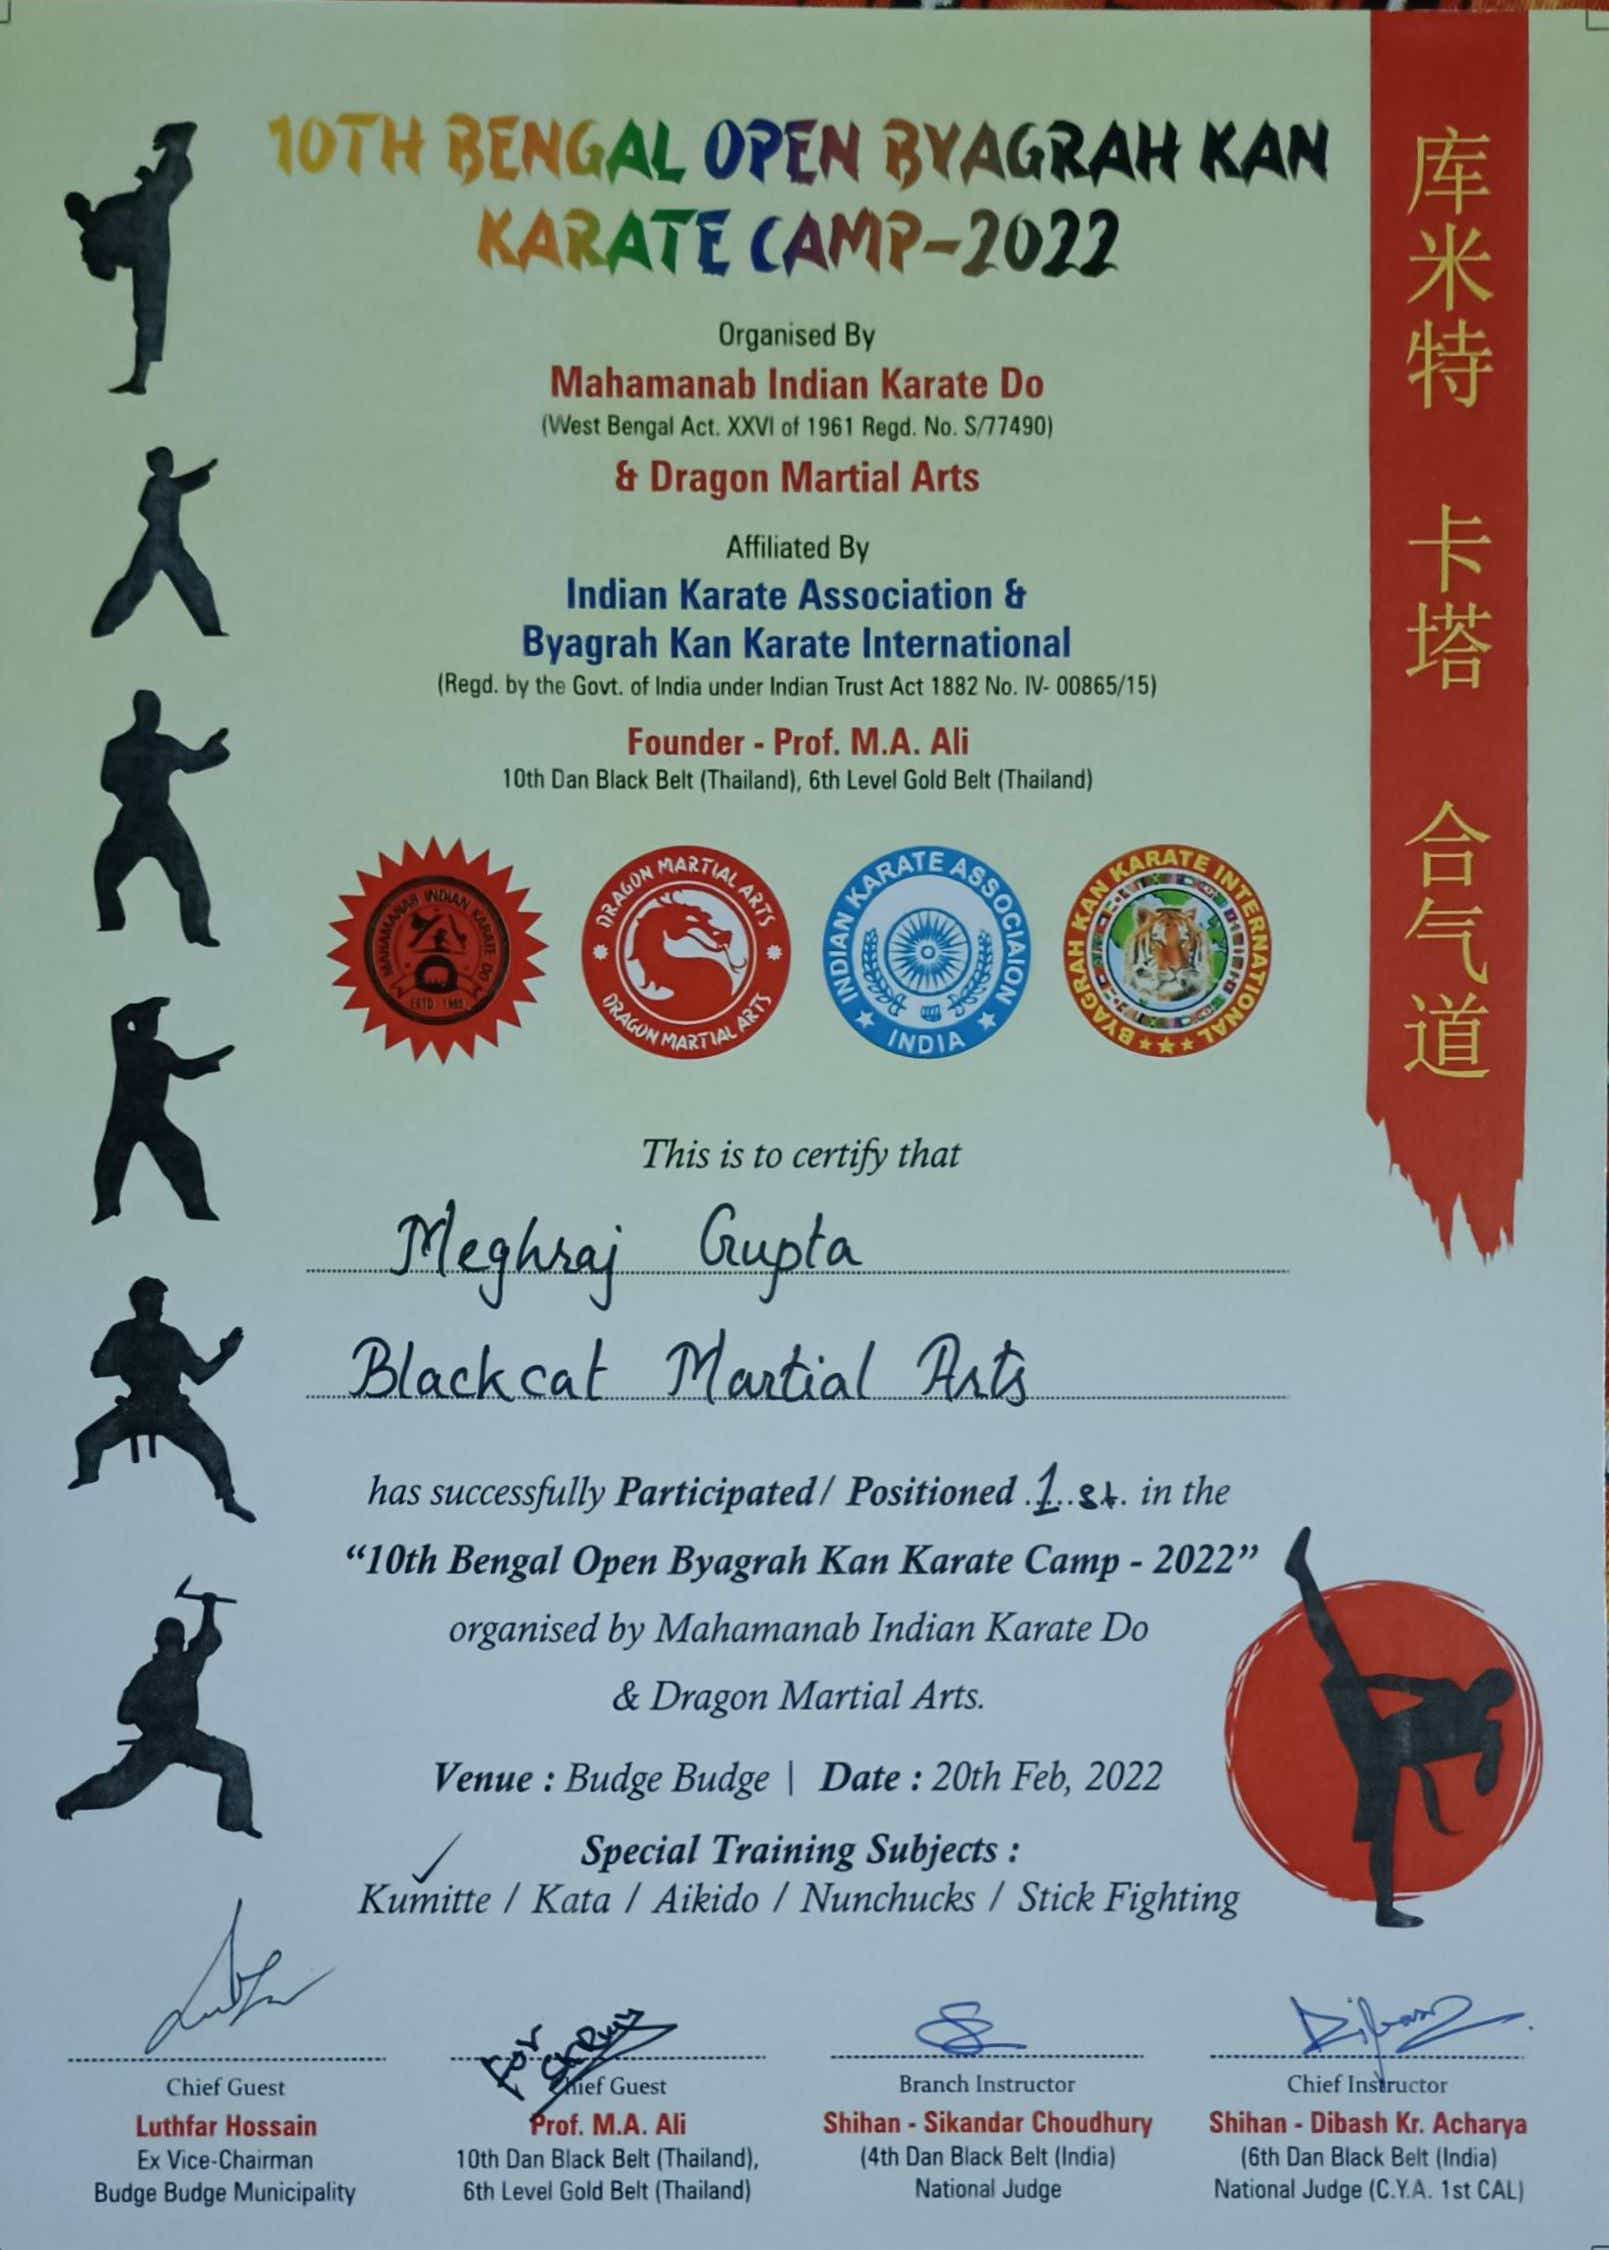 10TH BENGAL OPEN BYAGRAH KAN
KARATE CAMP-2022
Organised By
Mahamanab Indian Karate Do
(West Bengal Act. XXVI of 1961 Regd. No. S/77490)
& Dragon Martial Arts
Affiliated By
Indian Karate Association &
Byagrah Kan Karate International
(Regd. by the Govt. of India under Indian Trust Act 1882 No. IV- 00865/15)
Founder - Prof. M.A. Ali
10th Dan Black Belt (Thailand), 6th Level Gold Belt (Thailand)
库米特 卡塔 合气道
MAHAMANAB INDIAN KARATE DO
DRAGON MARTIAL ARTS
DRAGON MARTIAL ARTS
INDIAN KARATE ASSOCIAION
INDIA
BYAGRAH KAN KARATE INTERNATIONAL
This is to certify that
Meghraj Gupta
Blackcat Martial Arts
has successfully Participated/ Positioned 1st in the
“10th Bengal Open Byagrah Kan Karate Camp - 2022”
organised by Mahamanab Indian Karate Do
& Dragon Martial Arts.
Venue : Budge Budge | Date : 20th Feb, 2022
Special Training Subjects :
Kumitte / Kata / Aikido / Nunchucks / Stick Fighting
Chief Guest
Luthfar Hossain
Ex Vice-Chairman
Budge Budge Municipality
For
Chief Guest
Prof. M.A. Ali
10th Dan Black Belt (Thailand),
6th Level Gold Belt (Thailand)
Branch Instructor
Shihan - Sikandar Choudhury
(4th Dan Black Belt (India)
National Judge
Chief Instructor
Shihan - Dibash Kr. Acharya
(6th Dan Black Belt (India)
National Judge (C.Y.A. 1st CAL)